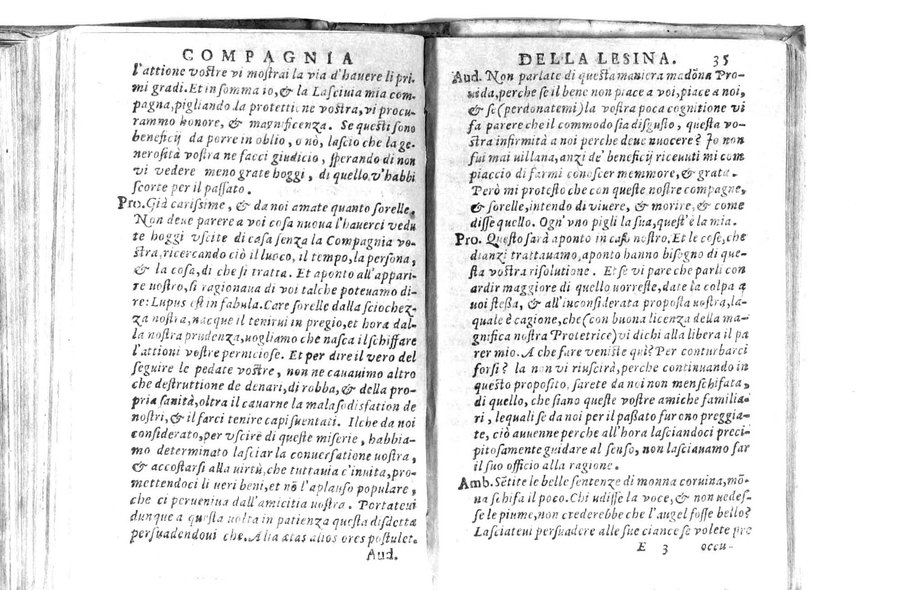 COMPAGNIA
l'attione vostre vi mostrai la via d'hauere li pri
mi gradi. Et in somma io, & la Lasciuia mia com
pagna, pigliando la protettione vostra, vi procu
rammo honore, & magnificenza. Se questi sono
beneficij da porre in oblio, o nò, lascio che la ge-
nerosità vostra ne facci giudicio, sperando di non
vi vedere meno grate hoggi, di quello v'habbi
scorte per il passato.
Pro. Già carissime, & da noi amate quanto sorelle,
Non deue parere a voi cosa nuoua l'hauerci vedu
te hoggi vscite di casa senza la Compagnia vo-
stra, ricercando ciò il luoco, il tempo, la persona,
& la cosa, di che si tratta. Et aponto all'appari
re vostro, si ragionaua di voi talche poteuamo di-
re: Lupus est in fabula. Care sorelle dalla sciochez
za nostra, nacque il tenirui in pregio, et hora dal
la nostra prudenza, uogliamo che nasca il schiffare
l'attioni vostre perniciose. Et per dire il vero del
seguire le pedate vostre, non ne cauauimo altro
che destruttione de denari, di robba, & della pro-
pria sanità, oltra il cauarne la mala sodisfation de
nostri, & il farci tenire capisuentati. Ilche da noi
considerato, per vscire di queste miserie, habbia-
mo determinato lasciar la conuersatione uostra,
& accostarsi alla uirtù, che tuttauia c'inuita, pro-
mettendoci li ueri beni, et nō l'applauso populare,
che ci perueniua dall'amicitia uostra. Portateui
dunque a questa uolta in patienza questa disdetta
persuadendoui che. Alia ætas alios ores postulet.
Aud.
DELLA LESINA. 35
Aud. Non parlate di questa maniera madōna Pro-
uida, perche se il bene non piace a voi, piace a noi,
& se (perdonatemi) la vostra poca cognitione vi
fa parere che il commodo sia disgusto, questa vo-
stra infirmità a noi perche deue nuocere? Io non
fui mai uillana, anzi de' beneficij riceuuti mi com
piaccio di farmi conoscer memmore, & grata.
Però mi protesto che con queste nostre compagne,
& sorelle, intendo di viuere, & morire, & come
disse quello. Ogn'vno pigli la sua, quest'è la mia.
Pro. Questo sarà aponto in caso nostro. Et le cose, che
dianzi trattauamo, aponto hanno bisogno di que-
sta vostra risolutione. Et se vi pare che parli con
ardir maggiore di quello uorreste, date la colpa a
uoi stessa, & all'inconsiderata proposta uostra, la-
quale è cagione, che (con buona licenza della ma-
gnifica nostra Protetrice) vi dichi alla libera il pa
rer mio. A che fare veniste qui? Per conturbarci
forsi? la non vi riuscirà, perche continuando in
questo proposito, sarete da noi non men schifata,
di quello, che siano queste vostre amiche familia-
ri, lequali se da noi per il passato furono preggia-
te, ciò auuenne perche all'hora lasciandoci preci-
pitosamente guidare al senso, non lasciauamo far
il suo officio alla ragione.
Amb. Sētite le belle sentenze di monna coruina, mō-
na schifa il poco. Chi udisse la voce, & non uedes-
se le piume, non crederebbe che l'augel fosse bello?
Lasciateui persuadere alle sue ciance se volete pre
E 3 occu-